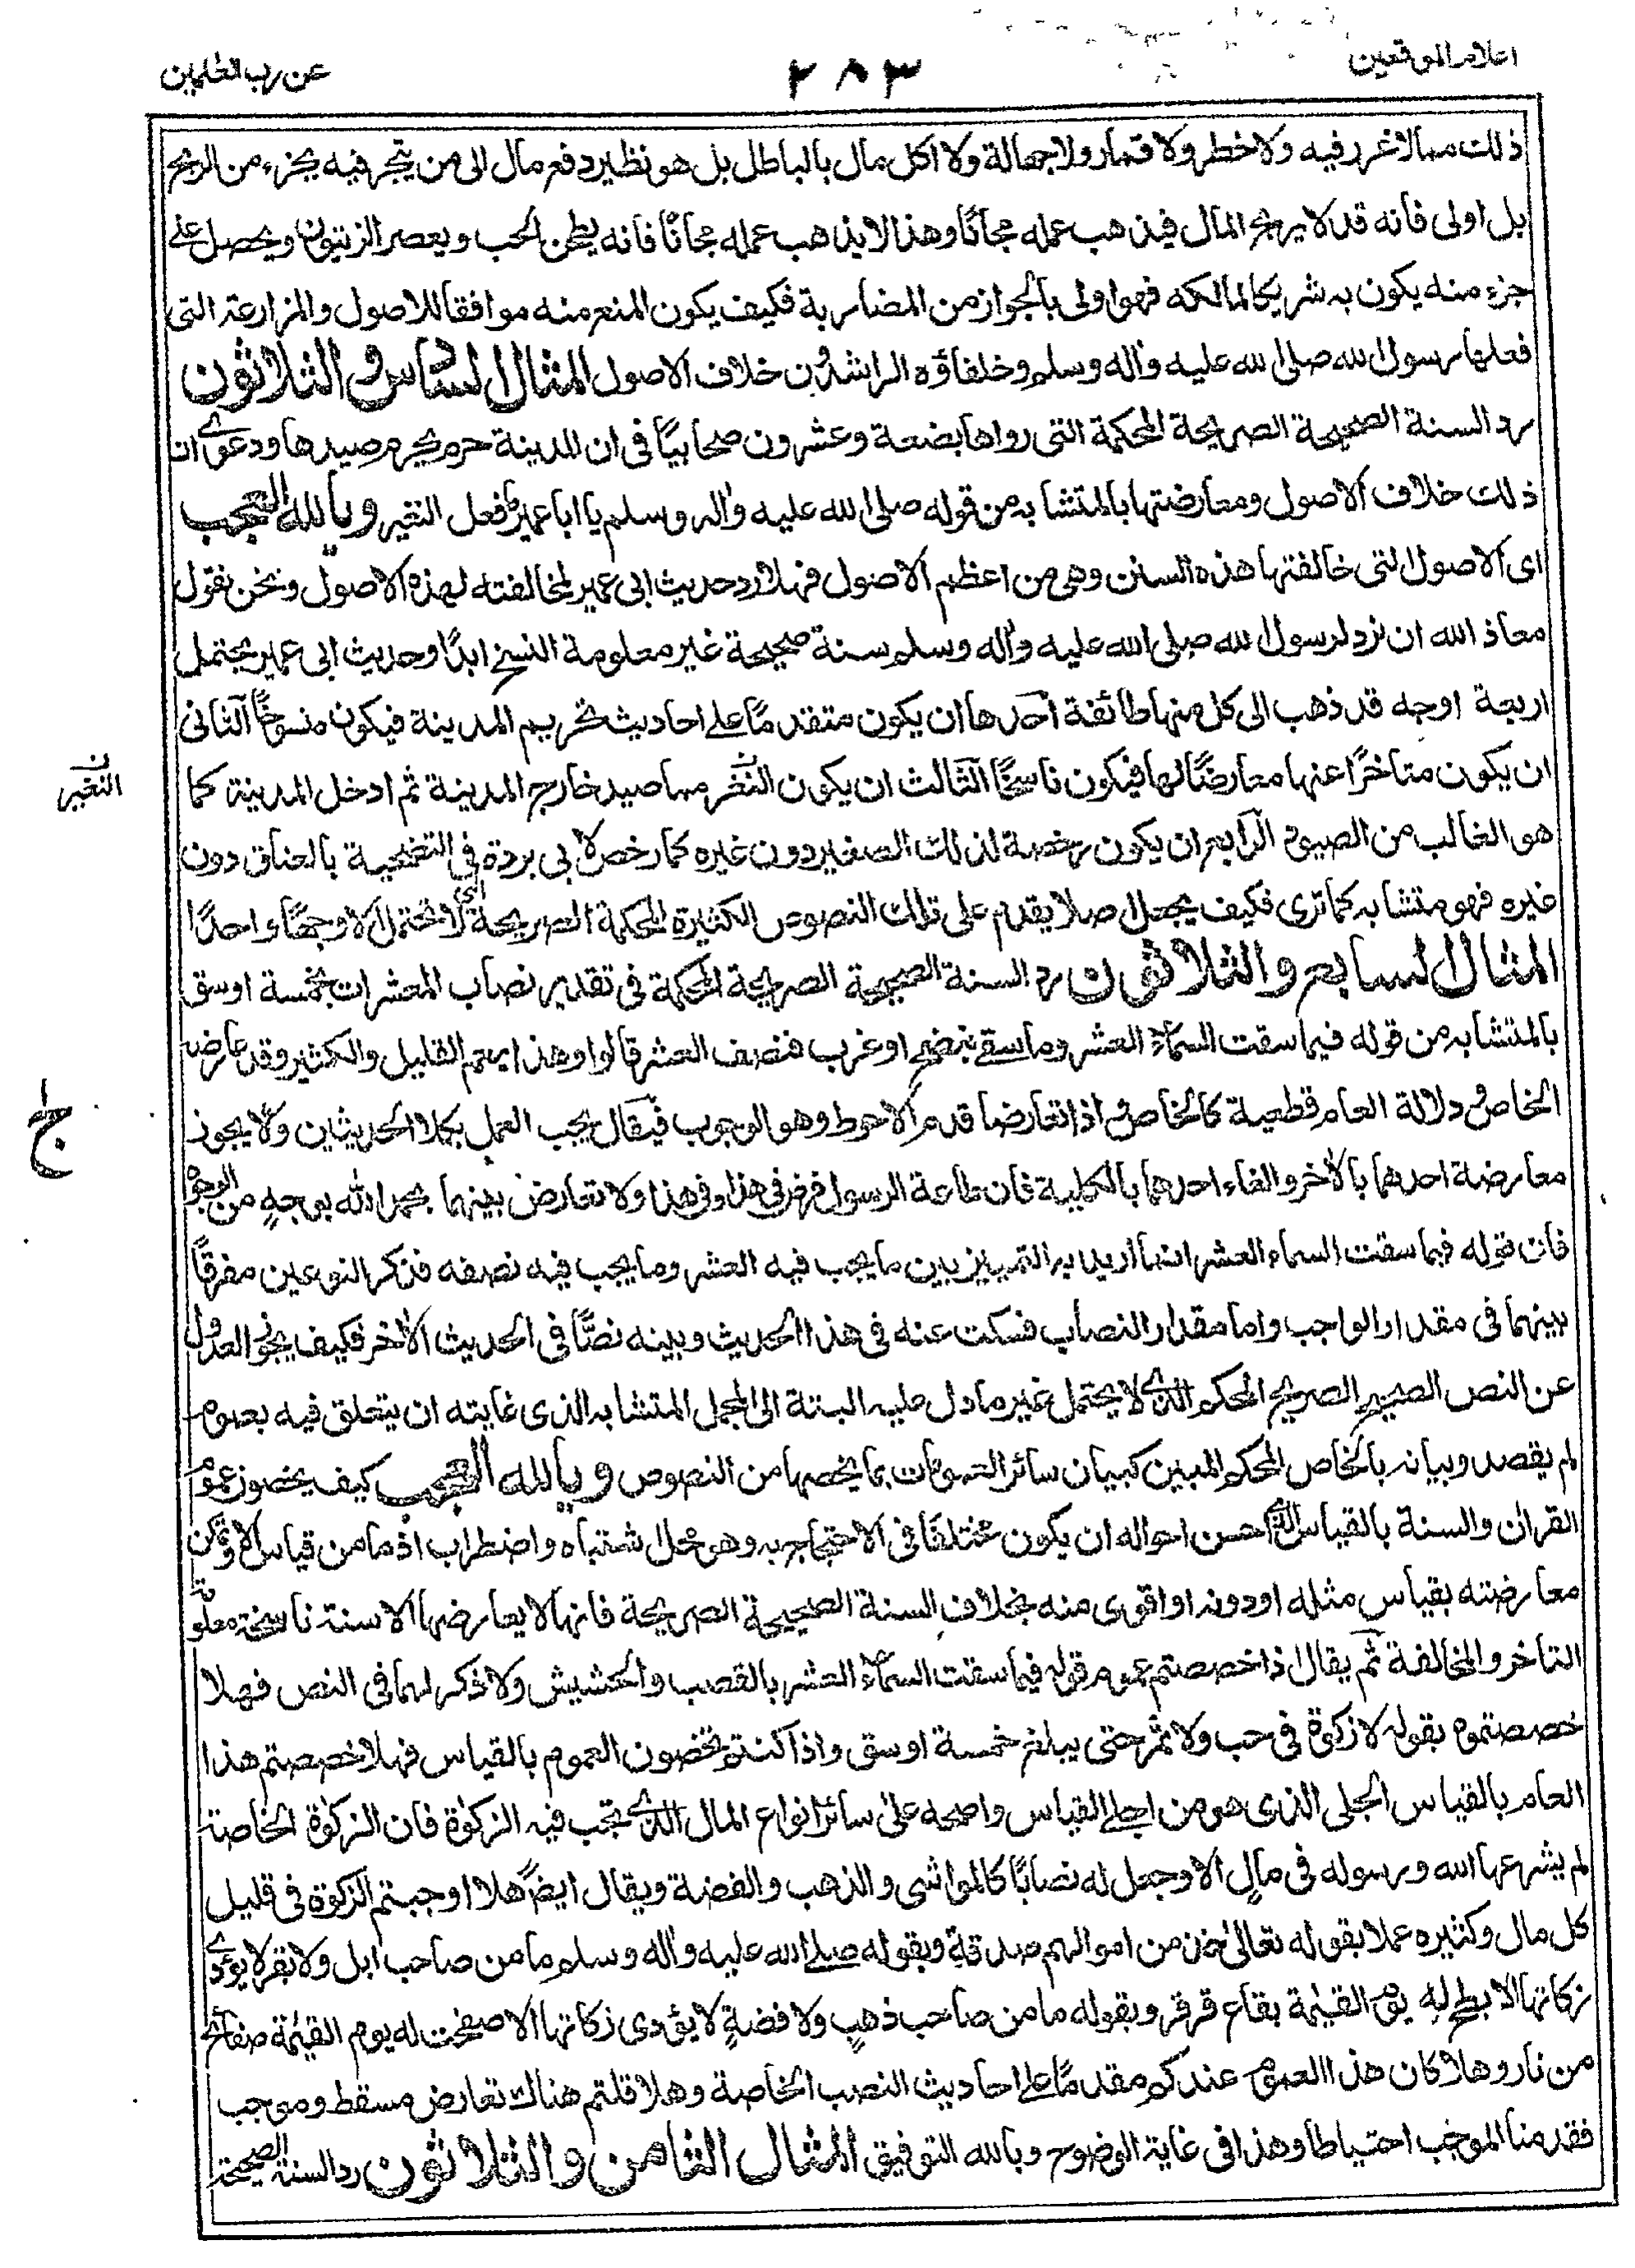 اعلام الموقعين
٢٨٣
عن رب العلمين
ذلك مما لا غرر فيه ولا خطر ولا قمار ولا جهالة ولا اكل مال بالباطل بل هو نظير دفع مال الى من يتجر فيه بجزء من الربح
بل اولى فانه قد لا يربح المال فيذهب عمله مجانًا وهذا لا يذهب عمله مجانًا فانه يطحن الحب ويعصر الزيتون ويحصل على
جزء منه يكون به شريكا لمالكه فهو اولى بالجواز من المضاربة فكيف يكون المنع منه موافقا للاصول والمزارعة التى
فعلها رسول الله صلى الله عليه واٰله وسلم وخلفاؤه الراشدون خلاف الاصول المثال السادس والثلاثون
رد السنة الصحيحة الصريحة المحكمة التى رواها بضعة وعشرون صحابيًا فى ان المدينة حرم يحرم صيدها ودعوى ان
ذلك خلاف الاصول ومعارضتها بالمتشابه من قوله صلى الله عليه واٰله وسلم يا ابا عمير ما فعل النغير ويا لله العجب
اى الاصول التى خالفتها هذه السنن وهى من اعظم الاصول فهلا رد حديث ابى عمير لمخالفته لهذه الاصول ونحن نقول
معاذ الله ان نرد لرسول الله صلى الله عليه واٰله وسلم سنة صحيحة غير معلومة النسخ ابدًا وحديث ابى عمير يحتمل
اربعة اوجه قد ذهب الى كل منها طائفة احدها ان يكون متقدمًا على احاديث تحريم المدينة فيكون منسوخًا الثانى
ان يكون متاخرًا عنها معارضًا لها فيكون ناسخًا الثالث ان يكون النغر مما صيد خارج المدينة ثم ادخل المدينة كما
النغير
هو الغالب من الصيود الرابع ان يكون رخصة لذلك الصغير دون غيره كما رخص لابى بردة فى التضحية بالعناق دون
غيره فهو متشابه كما ترى فكيف يجعل اصلا يقدم على تلك النصوص الكثيرة المحكمة الصريحة التى لا تحتمل الا وجهًا واحدًا
المثال السابع والثلاثون رد السنة الصحيحة الصريحة المحكمة فى تقدير نصاب المعشرات بخمسة اوسق
بالمتشابه من قوله فيما سقت السماء العشر وما سقى بنضح او غرب فنصف العشر قالوا وهذا يعم القليل والكثير وقد عارضه
الخاص ودلالة العام قطعية كالخاص واذا تعارضا قدم الاحوط وهو الوجوب فيقال يجب العمل بكلا الحديثين ولا يجوز
معارضة احدهما بالاٰخر والغاء احدهما بالكلية فان طاعة الرسول فرض فى هذا وفى هذا ولا تعارض بينهما بحمد الله بوجهٍ من الوجوه
فان قوله فيما سقت السماء العشر انما اريد به التمييز بين ما يجب فيه العشر وما يجب فيه نصفه فذكر النوعين مفرقًا
بينهما فى مقدار الواجب واما مقدار النصاب فسكت عنه فى هذا الحديث وبينه نصًّا فى الحديث الاٰخر فكيف يجوز العدول
عن النص الصحيح الصريح المحكم الذى لا يحتمل غير ما دل عليه البتة الى المجمل المتشابه الذى غايته ان يتعلق فيه بعموم
لم يقصد وبيانه بالخاص المحكم المبين كبيان سائر العمومات بما يخصها من النصوص ويا لله العجب كيف يخصون عموم
القراٰن والسنة بالقياس الذى احسن احواله ان يكون مختلفًا فى الاحتجاج به وهو محل اشتباه واضطراب اذ ما من قياس الا وتمكن
معارضته بقياس مثله او دونه او اقوى منه بخلاف السنة الصحيحة الصريحة فانها لا يعارضها الا سنة ناسخة معلومة
التاخر والمخالفة ثم يقال اذا خصصتم عموم قوله فيما سقت السماء العشر بالقصب والحشيش ولا ذكر لهما فى النص فهلا
خصصتموه بقوله لا زكوة فى حب ولا ثمر حتى يبلغ خمسة اوسق واذا كنتم تخصون العموم بالقياس فهلا خصصتم هذا
العام بالقياس الجلى الذى هو من اجلى القياس واصحه على سائر انواع المال الذى تجب فيه الزكوٰة فان الزكوٰة الخاصة
لم يشرعها الله ورسوله فى مالٍ الا وجعل له نصابًا كالمواشى والذهب والفضة ويقال ايضًا هلا اوجبتم الزكوة فى قليل
كل مال وكثيره عملا بقوله تعالىٰ خذ من اموالهم صدقة وبقوله صلى الله عليه واٰله وسلم ما من صاحب ابل ولا بقر لا يؤدى
زكاتها الا بطح له يوم القيٰمة بقاع قرقر وبقوله ما من صاحب ذهبٍ ولا فضةٍ لا يؤدى زكاتها الا صفحت له يوم القيٰمة صفائح
من نار وهلا كان هذا العموم عندكم مقدمًا على احاديث النصب الخاصة وهلا قلتم هناك تعارض مسقط وموجب
فقدمنا الموجب احتياطا وهذا فى غاية الوضوح وبالله التوفيق المثال الثامن والثلاثون رد السنة الصحيحة